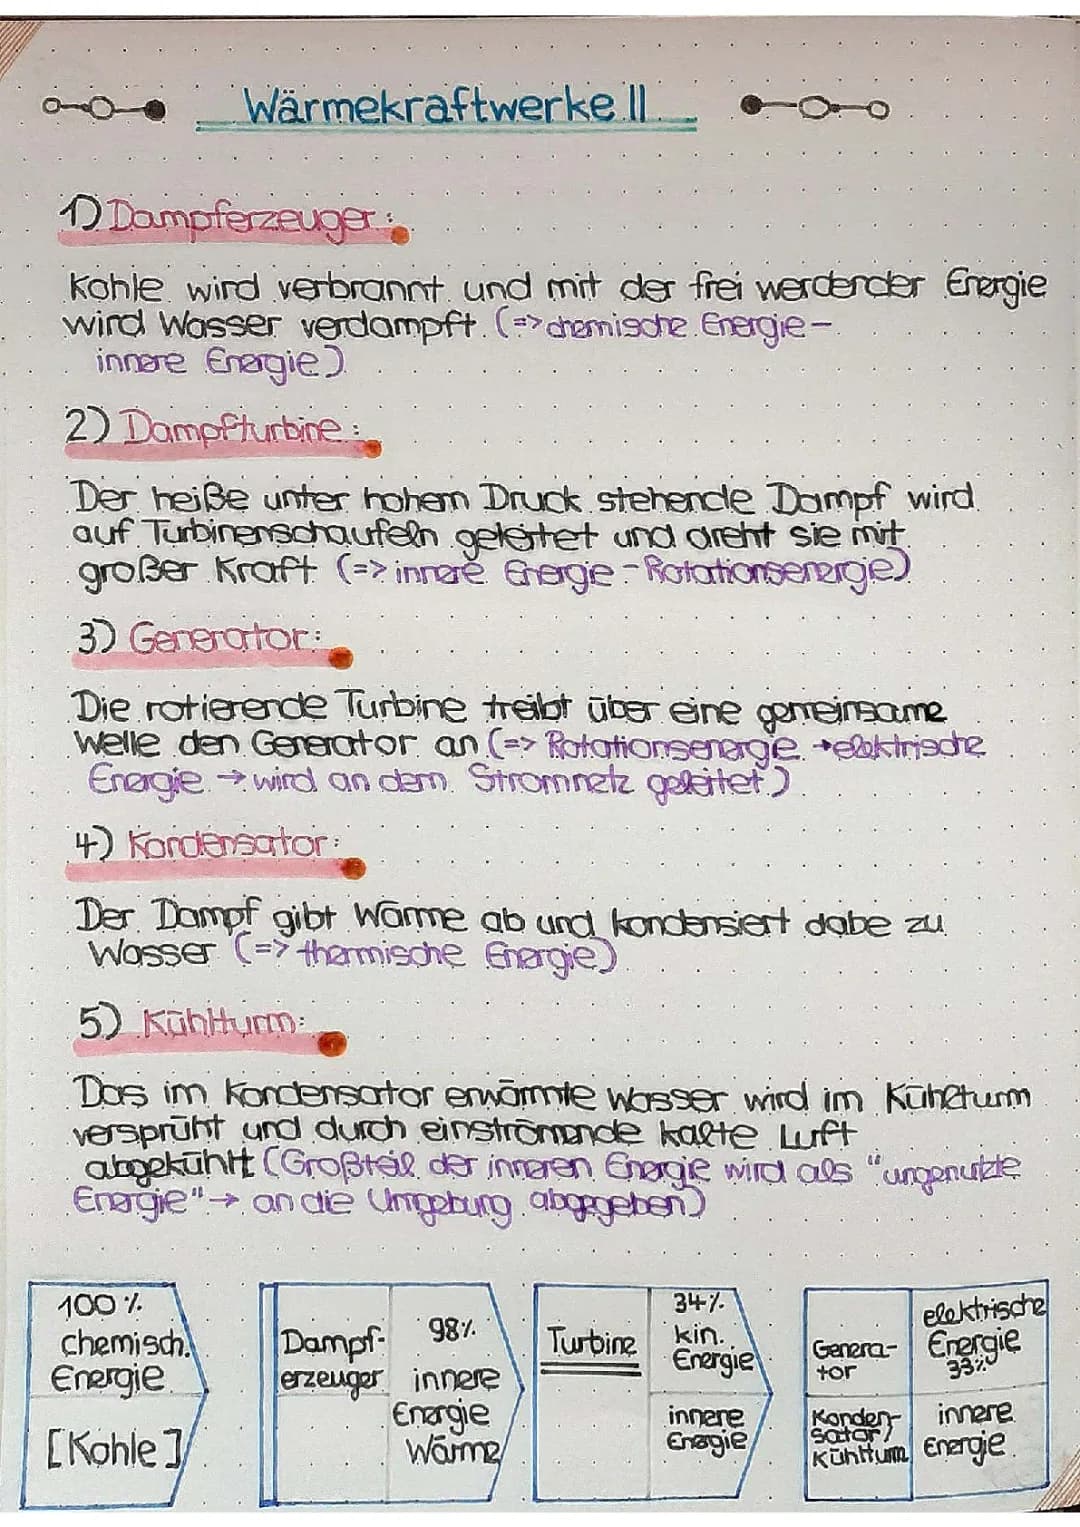 Wärmekraftwerke II
1) Dampferzeuger:
Kohle wird verbrannt und mit der frei werdender Energie
wird Wasser verdampft. (=> chemische Energie -
innere Energie)
2) Dampfturbine:
Der heiße unter hohem Druck stehende Dampf wird
auf Turbinenschaufeln geleitet und dreht sie mit
großer Kraft (=> innere Energie - Rotationsenergie)
3) Generator:
Die rotierende Turbine treibt über eine gemeinsame
Welle den Generator an (=> Rotationsenergie → elektrische
Energie → wird an dem Stromnetz geleitet)
4) Kondensator:
Der Dampf gibt Wärme ab und kondensiert dabe zu
Wasser (=> thermische Energie)
5) Kühlturm:
Das im Kondensator erwärmte Wasser wird im Kühlturm
versprüht und durch einströmende kalte Luft
abgekühlt (Großteil der inneren Energie wird als "ungenutzte
Energie" → an die Umgebung abgegeben)
100 %
chemisch.
Energie
[Kohle]
Dampf-
erzeuger
98%
innere
Energie
Wärme
Turbine
34%
kin.
Energie
innere
Energie
Genera-
tor
elektrische
Energie
33%
Konden-
sator/
Kühlturm
innere
Energie